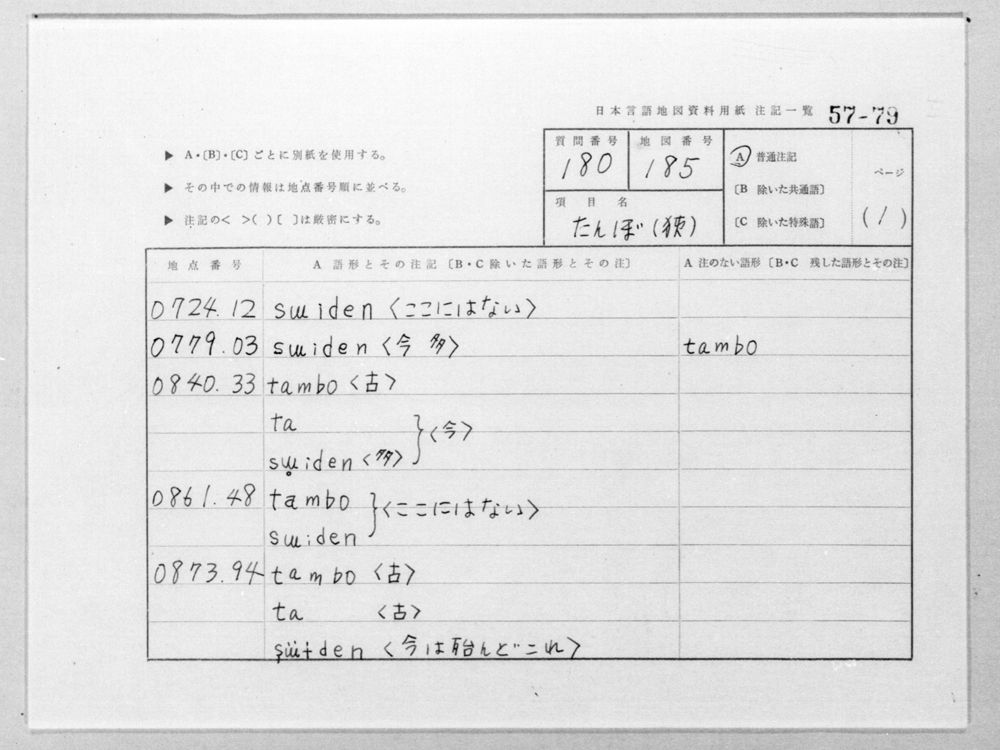 日本言語地図資料用紙 注記一覧 57-79
▶ A・〔B〕・〔C〕ごとに別紙を使用する。
▶ その中での情報は地点番号順に並べる。
▶ 注記の< >( )[ ]は厳密にする。
質問番号 180
地図番号 185
項目名 たんぼ(狭)
A 普通注記
〔B 除いた共通語〕
〔C 除いた特殊語〕
ページ (1)
地点番号 A 語形とその注記〔B・C除いた語形とその注〕 A 注のない語形〔B・C 残した語形とその注〕
0724.12 sɯiden 〈ここにはない〉
0779.03 sɯiden 〈今 多〉 tambo
0840.33 tambo 〈古〉
ta
sɯ̥iden 〈多〉 }〈今〉
0861.48 tambo
sɯiden }〈ここにはない〉
0873.94 tambo 〈古〉
ta 〈古〉
〈今は殆んどこれ〉